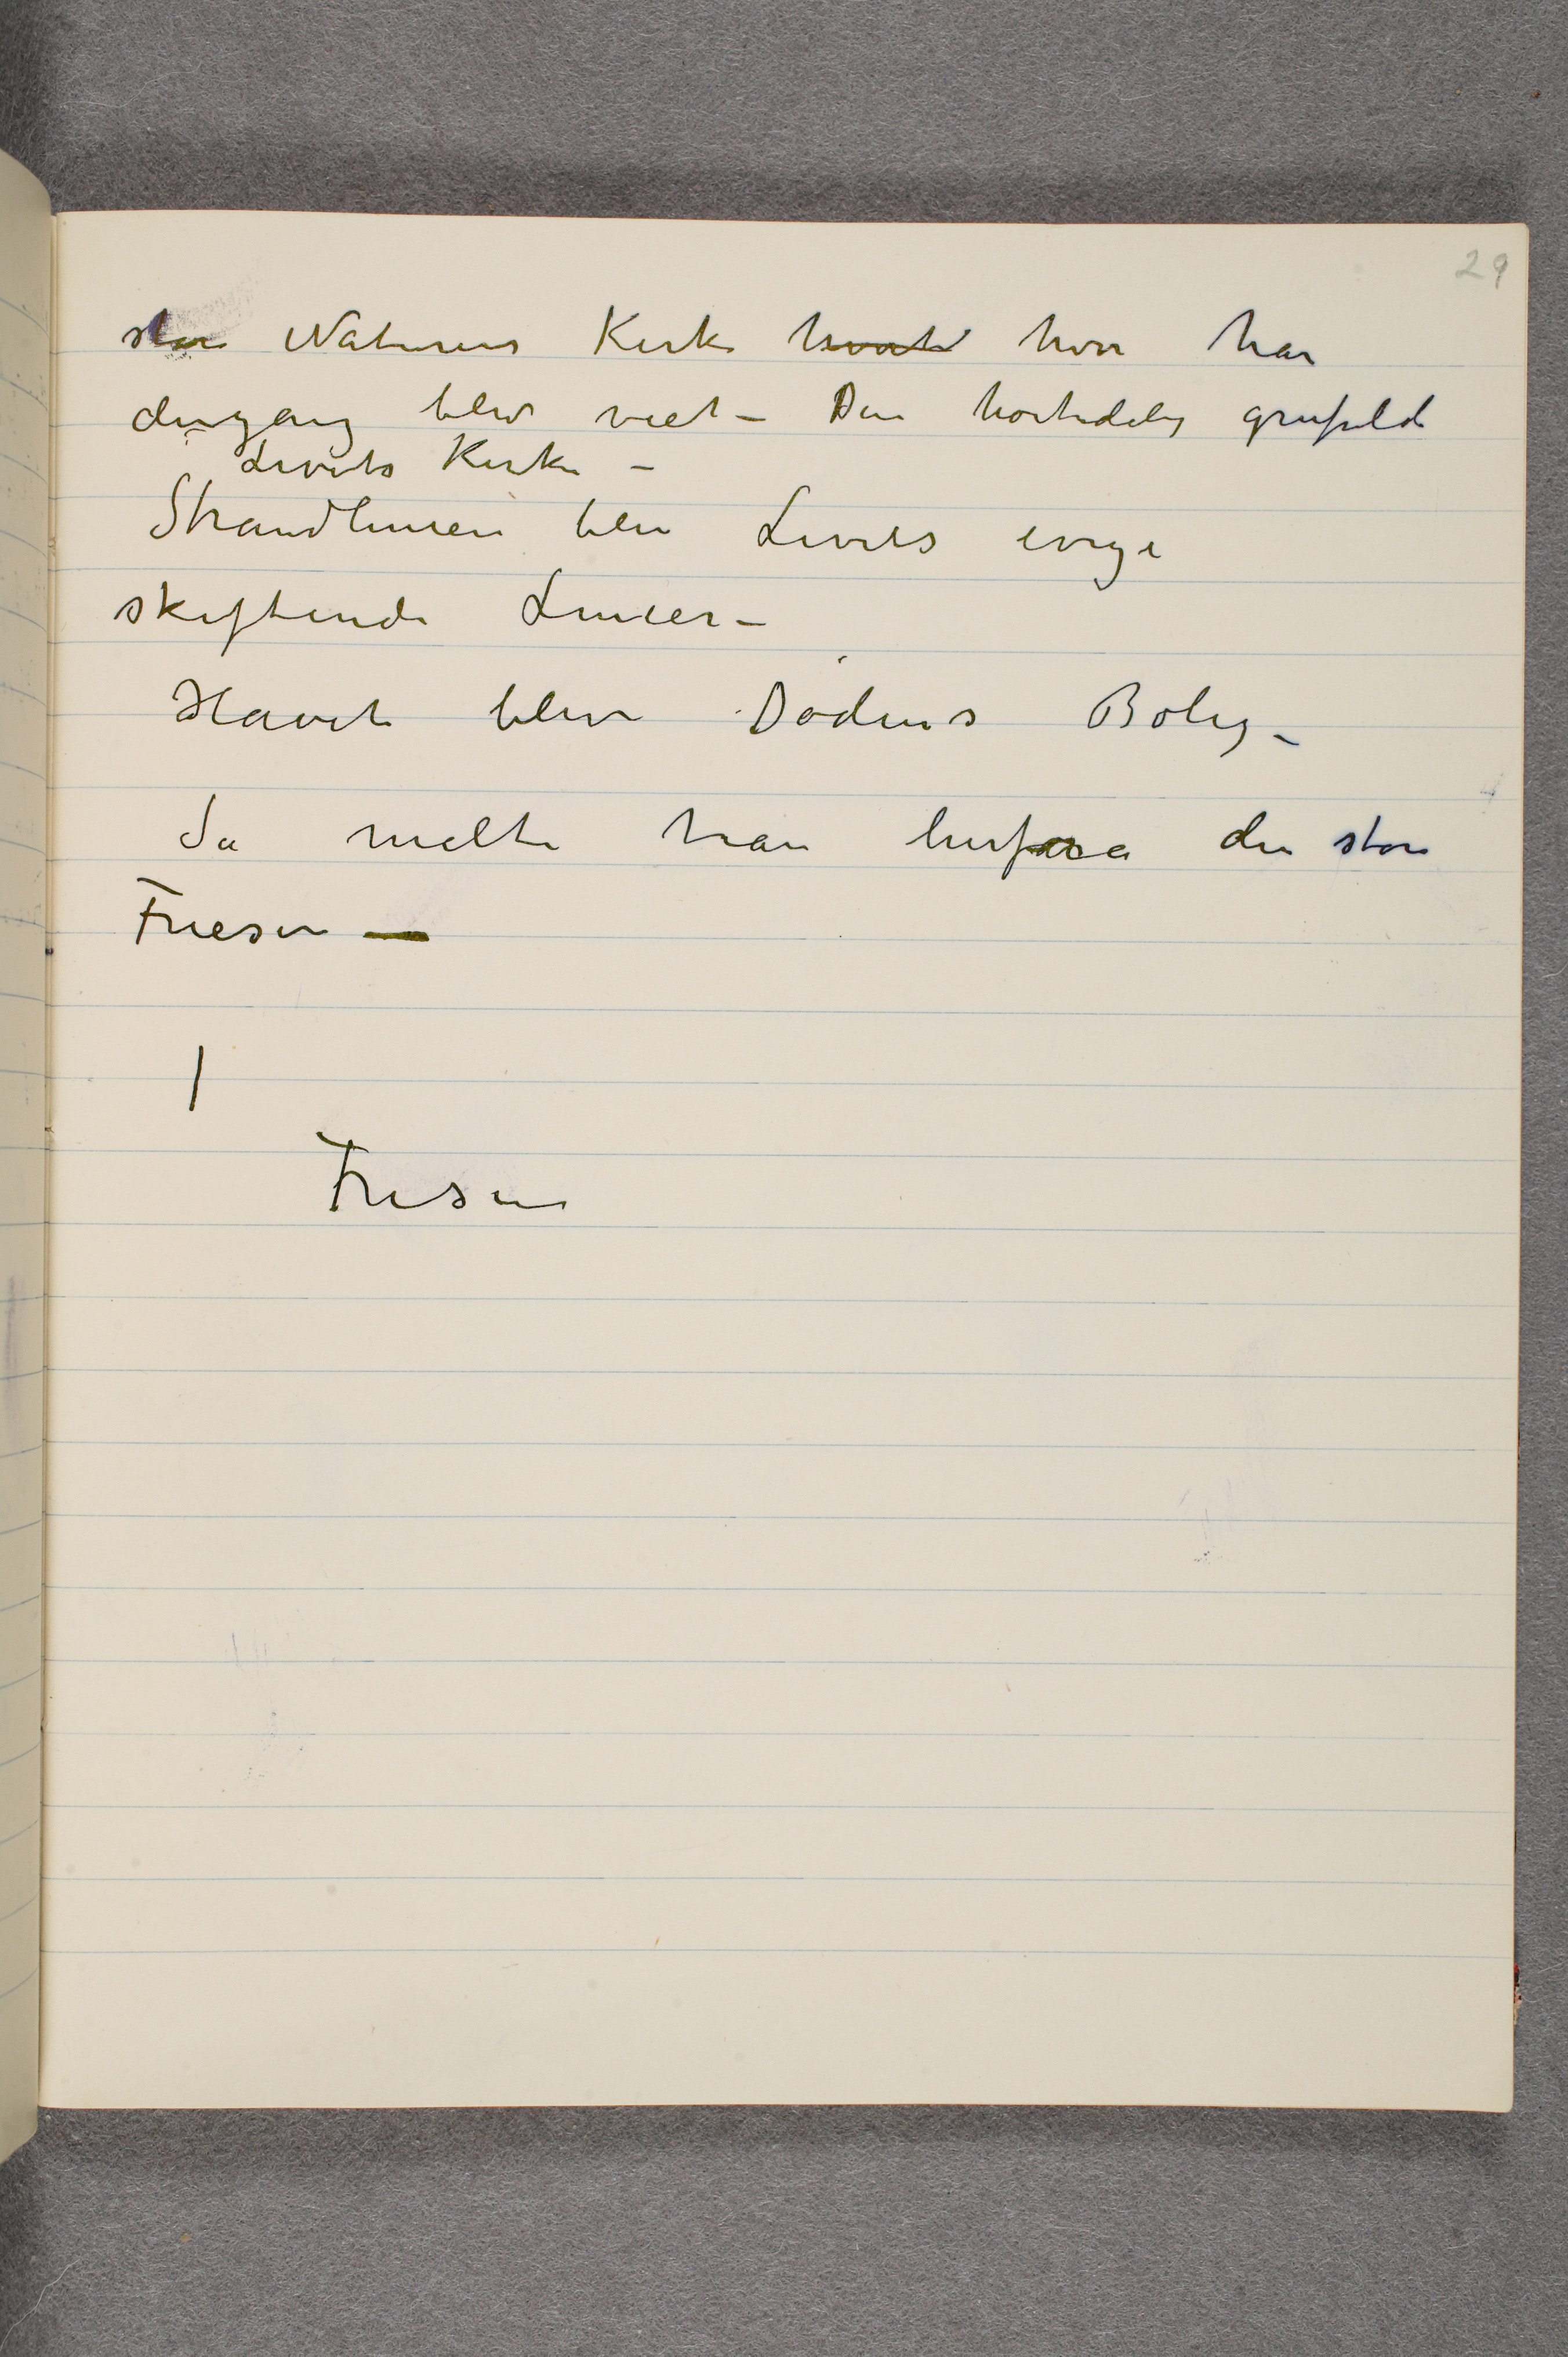 29
store Naturens Kirke hvort hvor han
dengang blev viet – Den høitidelig grufulde
Livets Kirke –
Strandlinien blev Livets evige
skiftende Linier –
Havet blev Dødens Bolig –
Så malte han herfra den store
Friesen —
|
Frisen